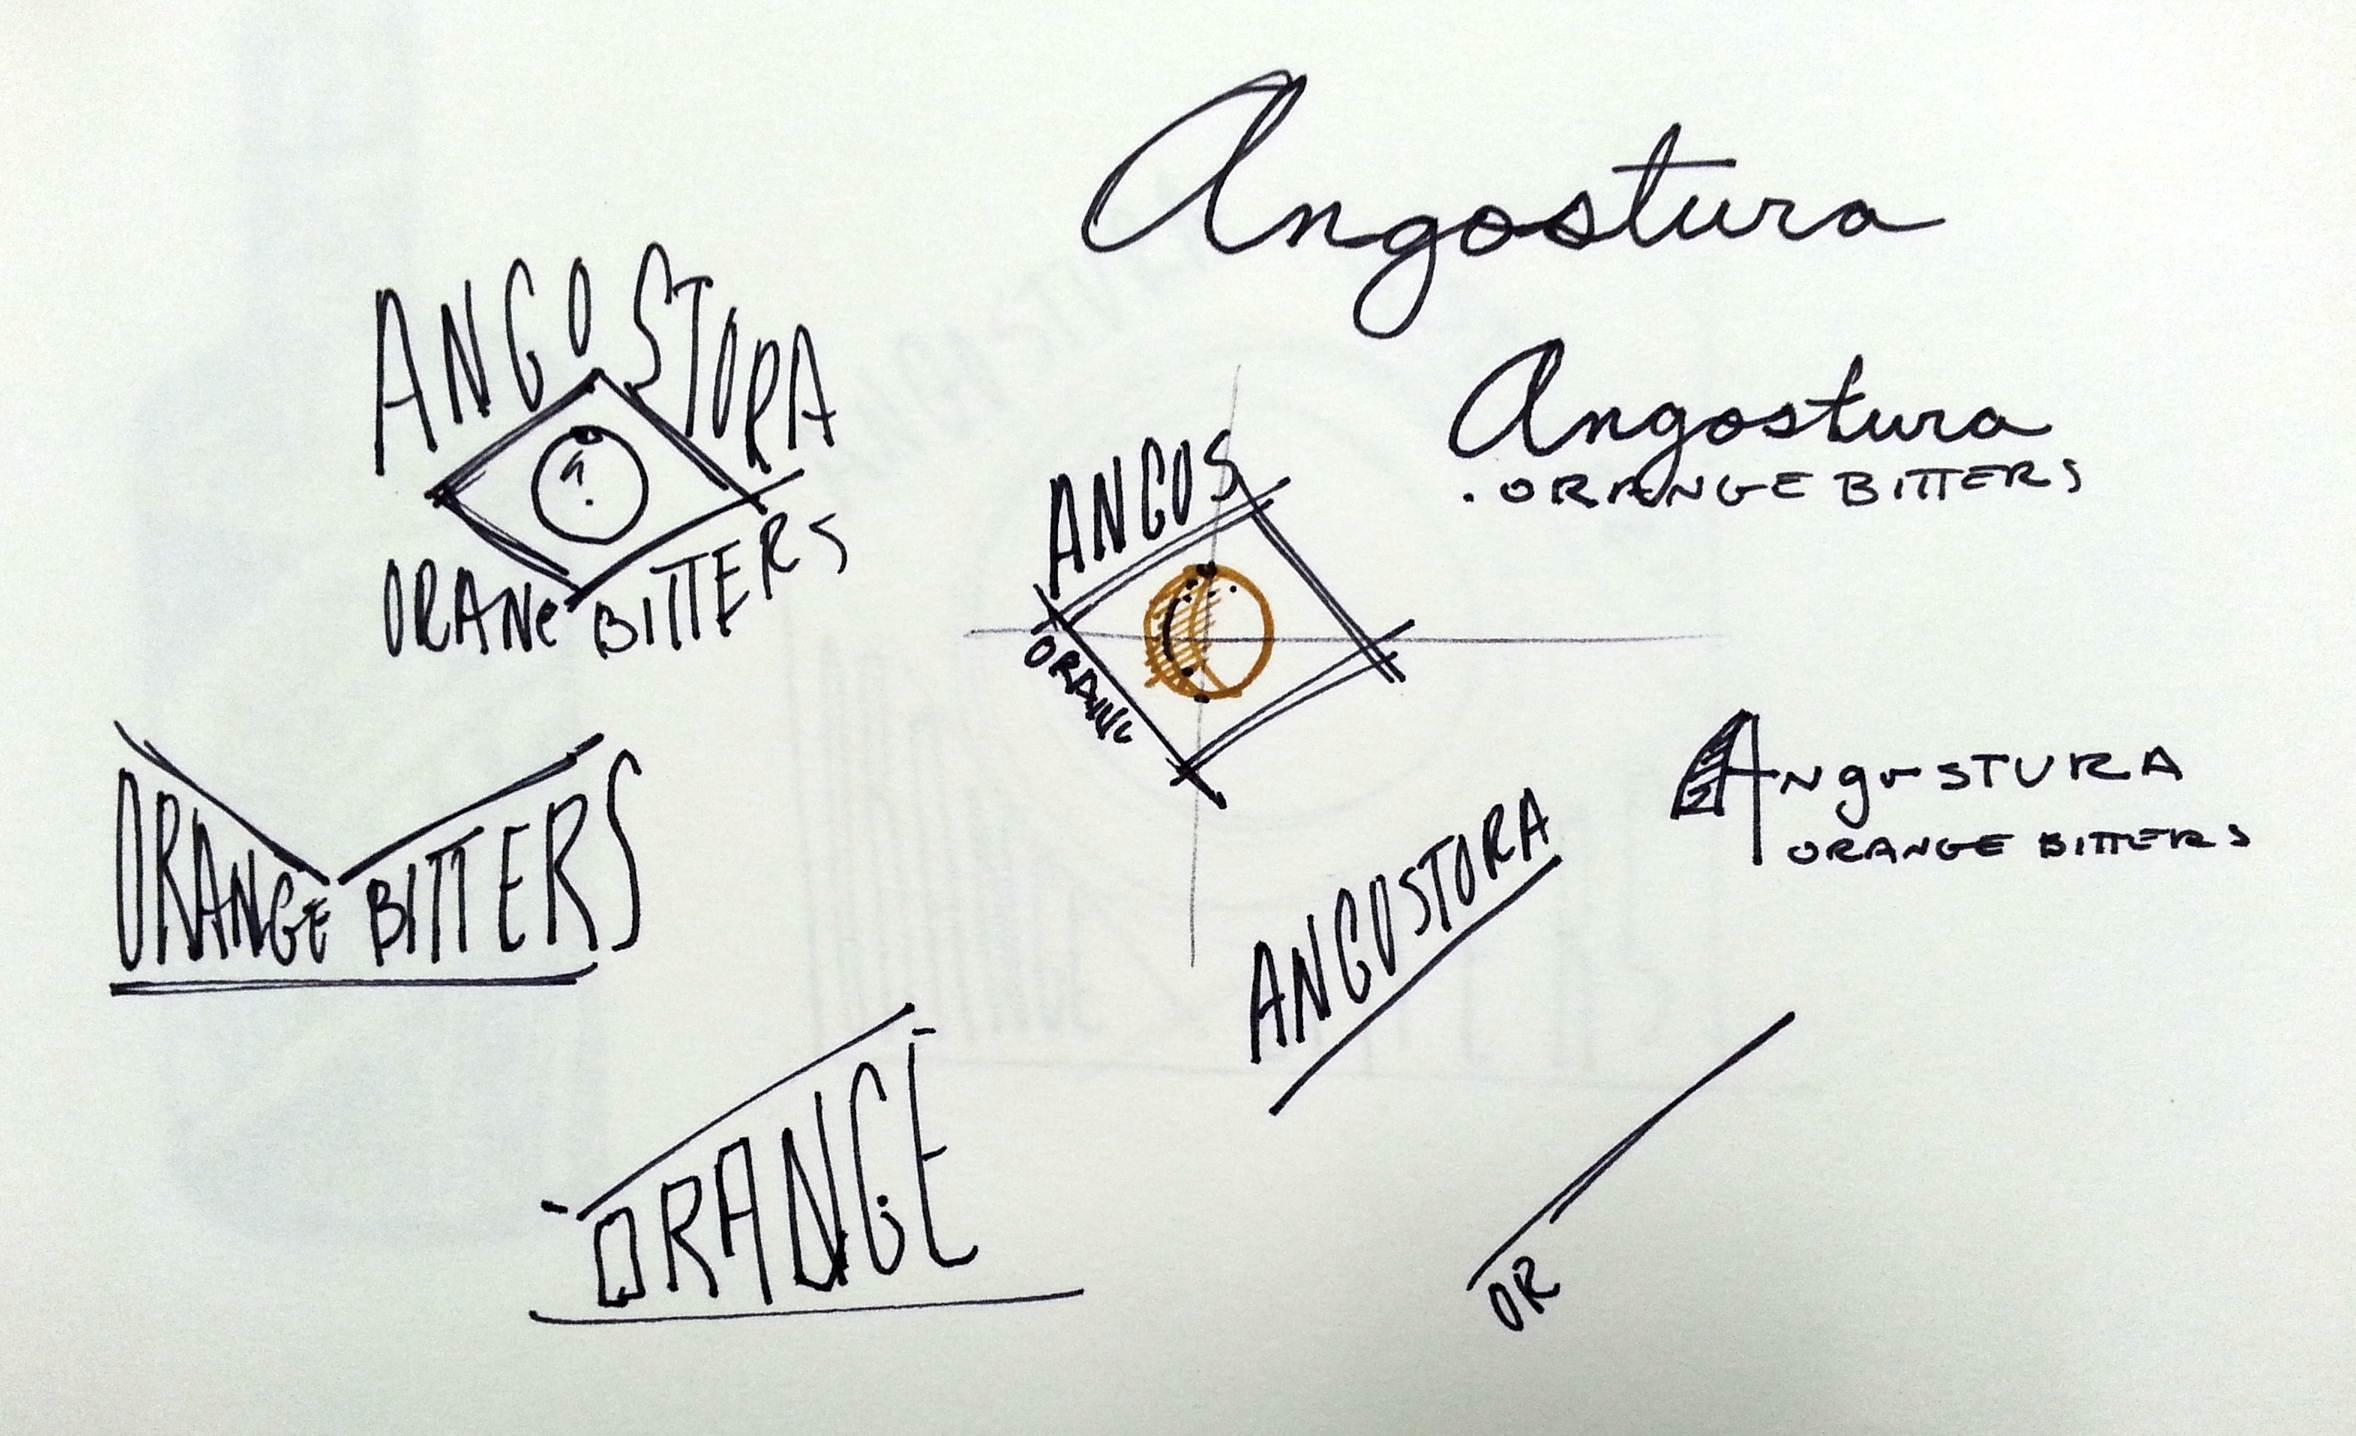 Angostura
ANGOSTURA
?
ORANGE BITTERS
Angostura
. ORANGE BITTERS
ANGOS
ORANG
ANGOSTURA
ORANGE BITTERS
ORANGE BITTERS
ANGOSTORA
ORANGE
OR